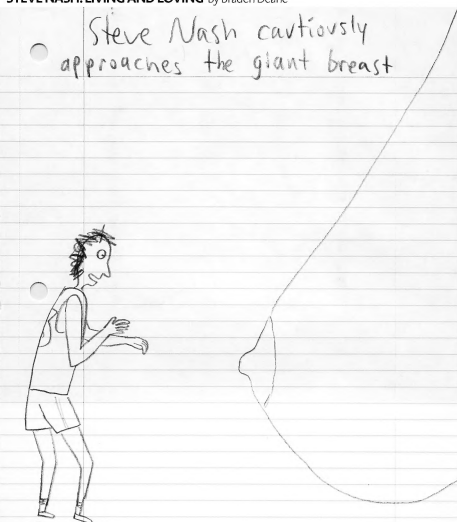 STEVE NASH: LIVING AND LOVING by Braden Deane
Steve Nash cautiously
approaches the giant breast